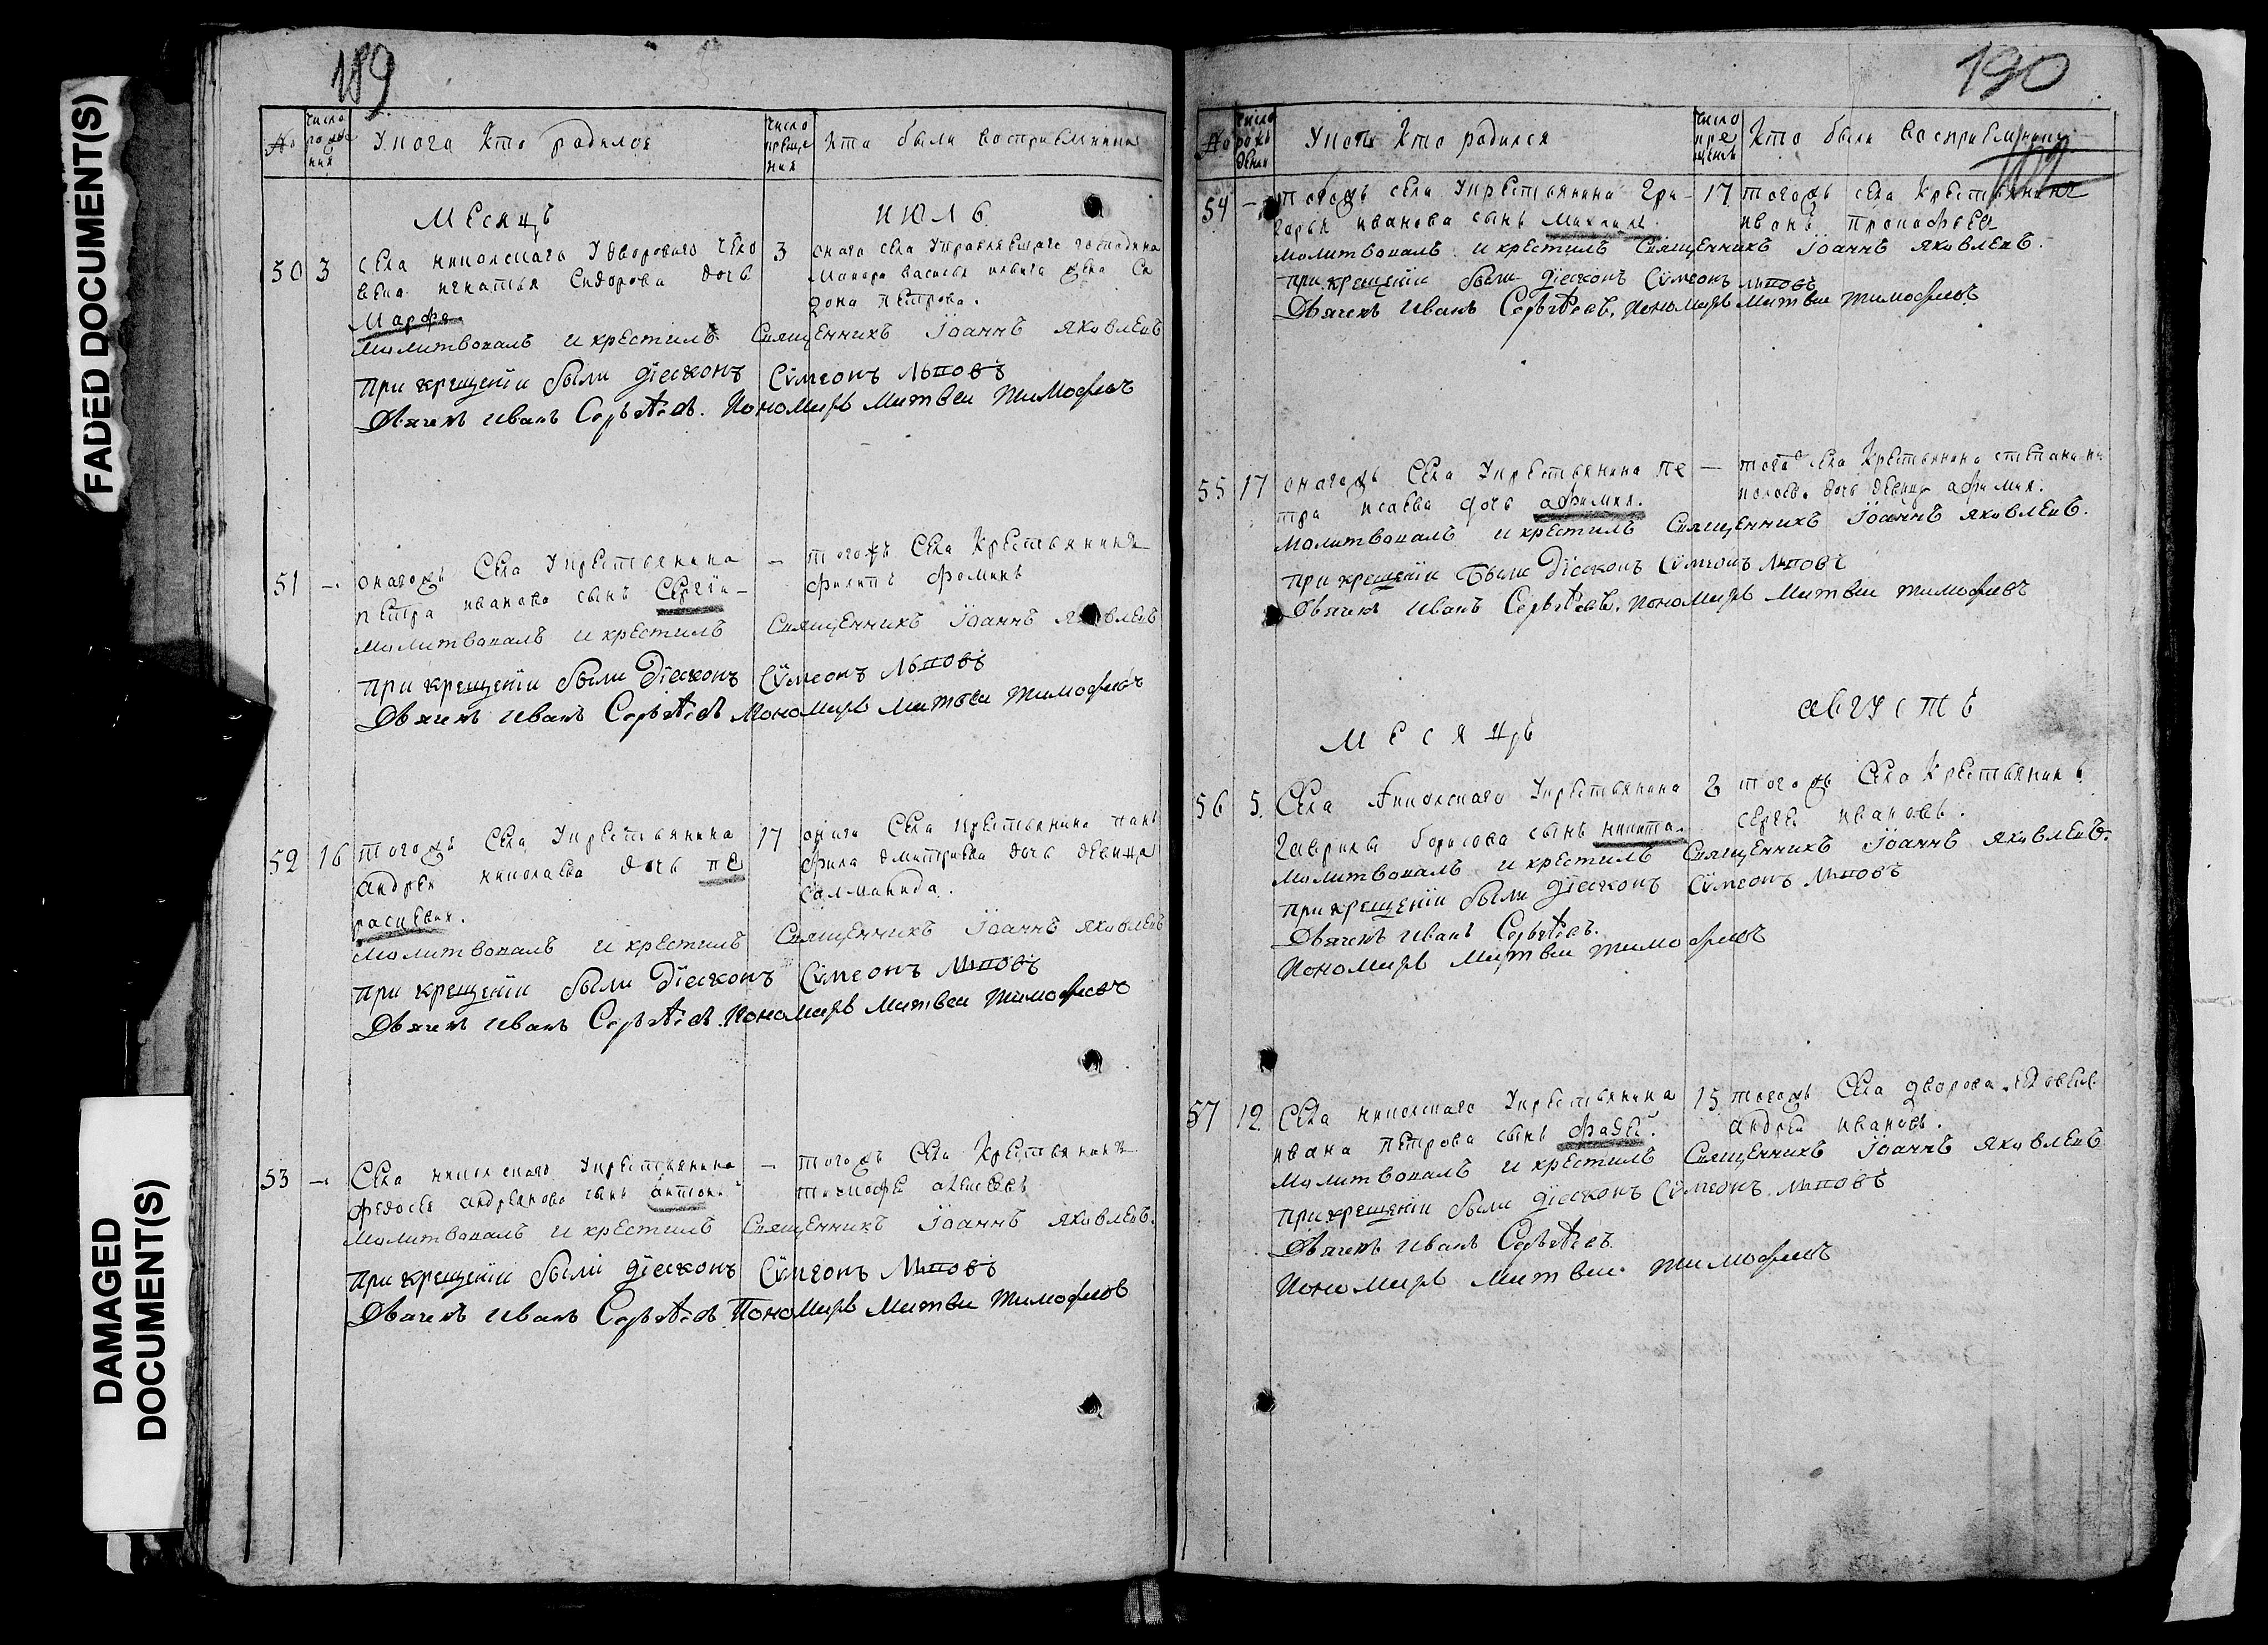 FADED DOCUMENT(S)
DAMAGED DOCUMENT(S)
189
№
число рожде ния
Укого Кто родился
число креще ния
Кто были восприемники
Месяцъ
июль
50 3 села никольского Удворового чело
века игнатья Сидорова дочь
Марфа.
3 оного села Управляещего господина
маиора василья
петрова.
молитвовалъ и крестилъ Священникъ Їоаннъ яковлевъ
При крещенїи были дїяконъ Сѵмеонъ Льповъ
Дьячекъ Иванъ Сергѣевъ. Пономарь Матвеи Тимофеевъ
51 –. оногожъ Села Укрестьянина
петра иванова сынъ Сергїи –
– тогожъ Села Крестьянинъ
филипъ фоминъ
молитвовалъ и крестилъ Священникъ Їоаннъ яковлевъ
При крещенїи были Дїяконъ Сѵмеонъ Льповъ
Дьячекъ Иванъ Сергѣевъ Пономарь Матвеи Тимофеевъ
52 16 тогожъ Села Укрестьянина
андрея николаева дочь пе
расцевия.
17 оного Села крестьянина пан
фила дмитриева дочь девица
саламанида.
молитвовалъ и крестилъ Священникъ Їоаннъ яковлевъ
При крещенїи были Дїяконъ Сѵмеонъ Льповъ
Дьячекъ Иванъ Сергѣевъ. Пономарь Матвеи Тимофеевъ
53 –. Села никольского Укрестьянина
федосея андреянова сынъ антони
– тогожъ Села Крестьянинъ
тимофеи алексеевъ
молитвовалъ и крестилъ Священникъ Їоаннъ яковлевъ.
При крещенїи были дїяконъ Сѵмеонъ Льповъ
Дьячекъ Иванъ Сергѣевъ Пономарь Матвеи Тимофеевъ
190
№
число рож дения
Укого Кто родился
число кре щения
Кто были восприемники
54 – тогожъ села Укрестьянина Гри-
горья иванова сынъ михаилъ
17 тогожъ села Крестьянинъ
иванъ прокофьев
молитвовалъ и крестилъ Священникъ Їоаннъ яковлевъ.
При крещенїи были дїяконъ Сѵмеонъ Льповъ
Дьячекъ Иванъ Сергѣевъ, Пономарь Матвеи Тимофеевъ
55 17 оногожъ Села Укрестьянина пе
тра исаева дочь афимия.
– тогож села Крестьянина степана ни
колаева дочь девица афимия.
молитвовалъ и крестилъ Священникъ Їоаннъ яковлевъ.
При крещенїи были Дїяконъ Сѵмеонъ Льповъ
Дьячекъ Иванъ Сергѣевъ. Пономарь Матвеи Тимофеевъ
месяцъ
августъ
56 5. Села никольского Укрестьянина
гаврилы борисова сынъ никита.
тогожъ Села Крестьянинъ
сергеи ивановъ.
молитвовалъ и крестилъ Священникъ Їоаннъ яковлевъ.
При крещенїи были дїяконъ Сѵмеонъ Льповъ
Дьячекъ Иванъ Сергѣевъ.
Пономарь Матвеи Тимофеевъ
57 12. Села никольского Укрестьянина
ивана петрова сынъ фадеї.
15 тогожъ Села дворовои человек
андреи ивановъ.
молитвовалъ и крестилъ Священникъ Їоаннъ яковлевъ
При крещенїи были дїяконъ Сѵмеонъ Льповъ
Дьячекъ Иванъ Сергѣевъ.
Пономарь Матвеи Тимофеевъ